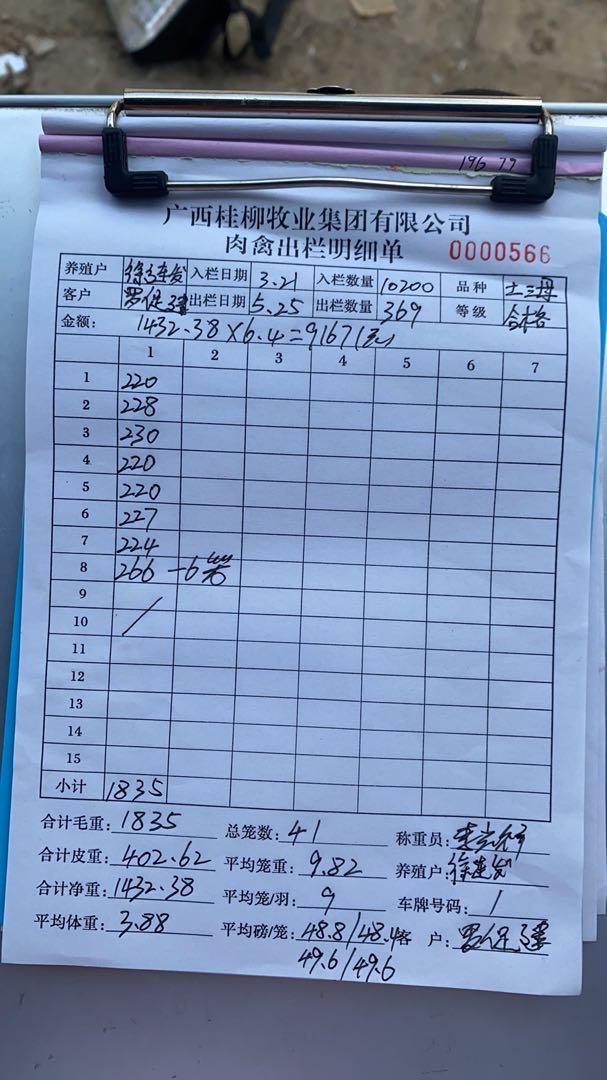 196 79
广西桂柳牧业集团有限公司
肉禽出栏明细单 0000566
养殖户 徐连发 入栏日期 3.21 入栏数量 10200 品种 土三母
客户 出栏日期 5.25 出栏数量 369 等级 合格
金额: 1432.38×6.4=9167元
1 2 3 4 5 6 7
1 220
2 228
3 230
4 220
5 220
6 227
7 224
8 266 -6笼
9
10 /
11
12
13
14
15
小计 1835
合计毛重: 1835 总笼数: 41 称重员:
合计皮重: 402.62 平均笼重: 9.82 养殖户: 徐连发
合计净重: 1432.38 平均笼/羽: 9 车牌号码: /
平均体重: 3.88 平均磅/笼: 48.8/48.4 客 户:
49.6/49.6